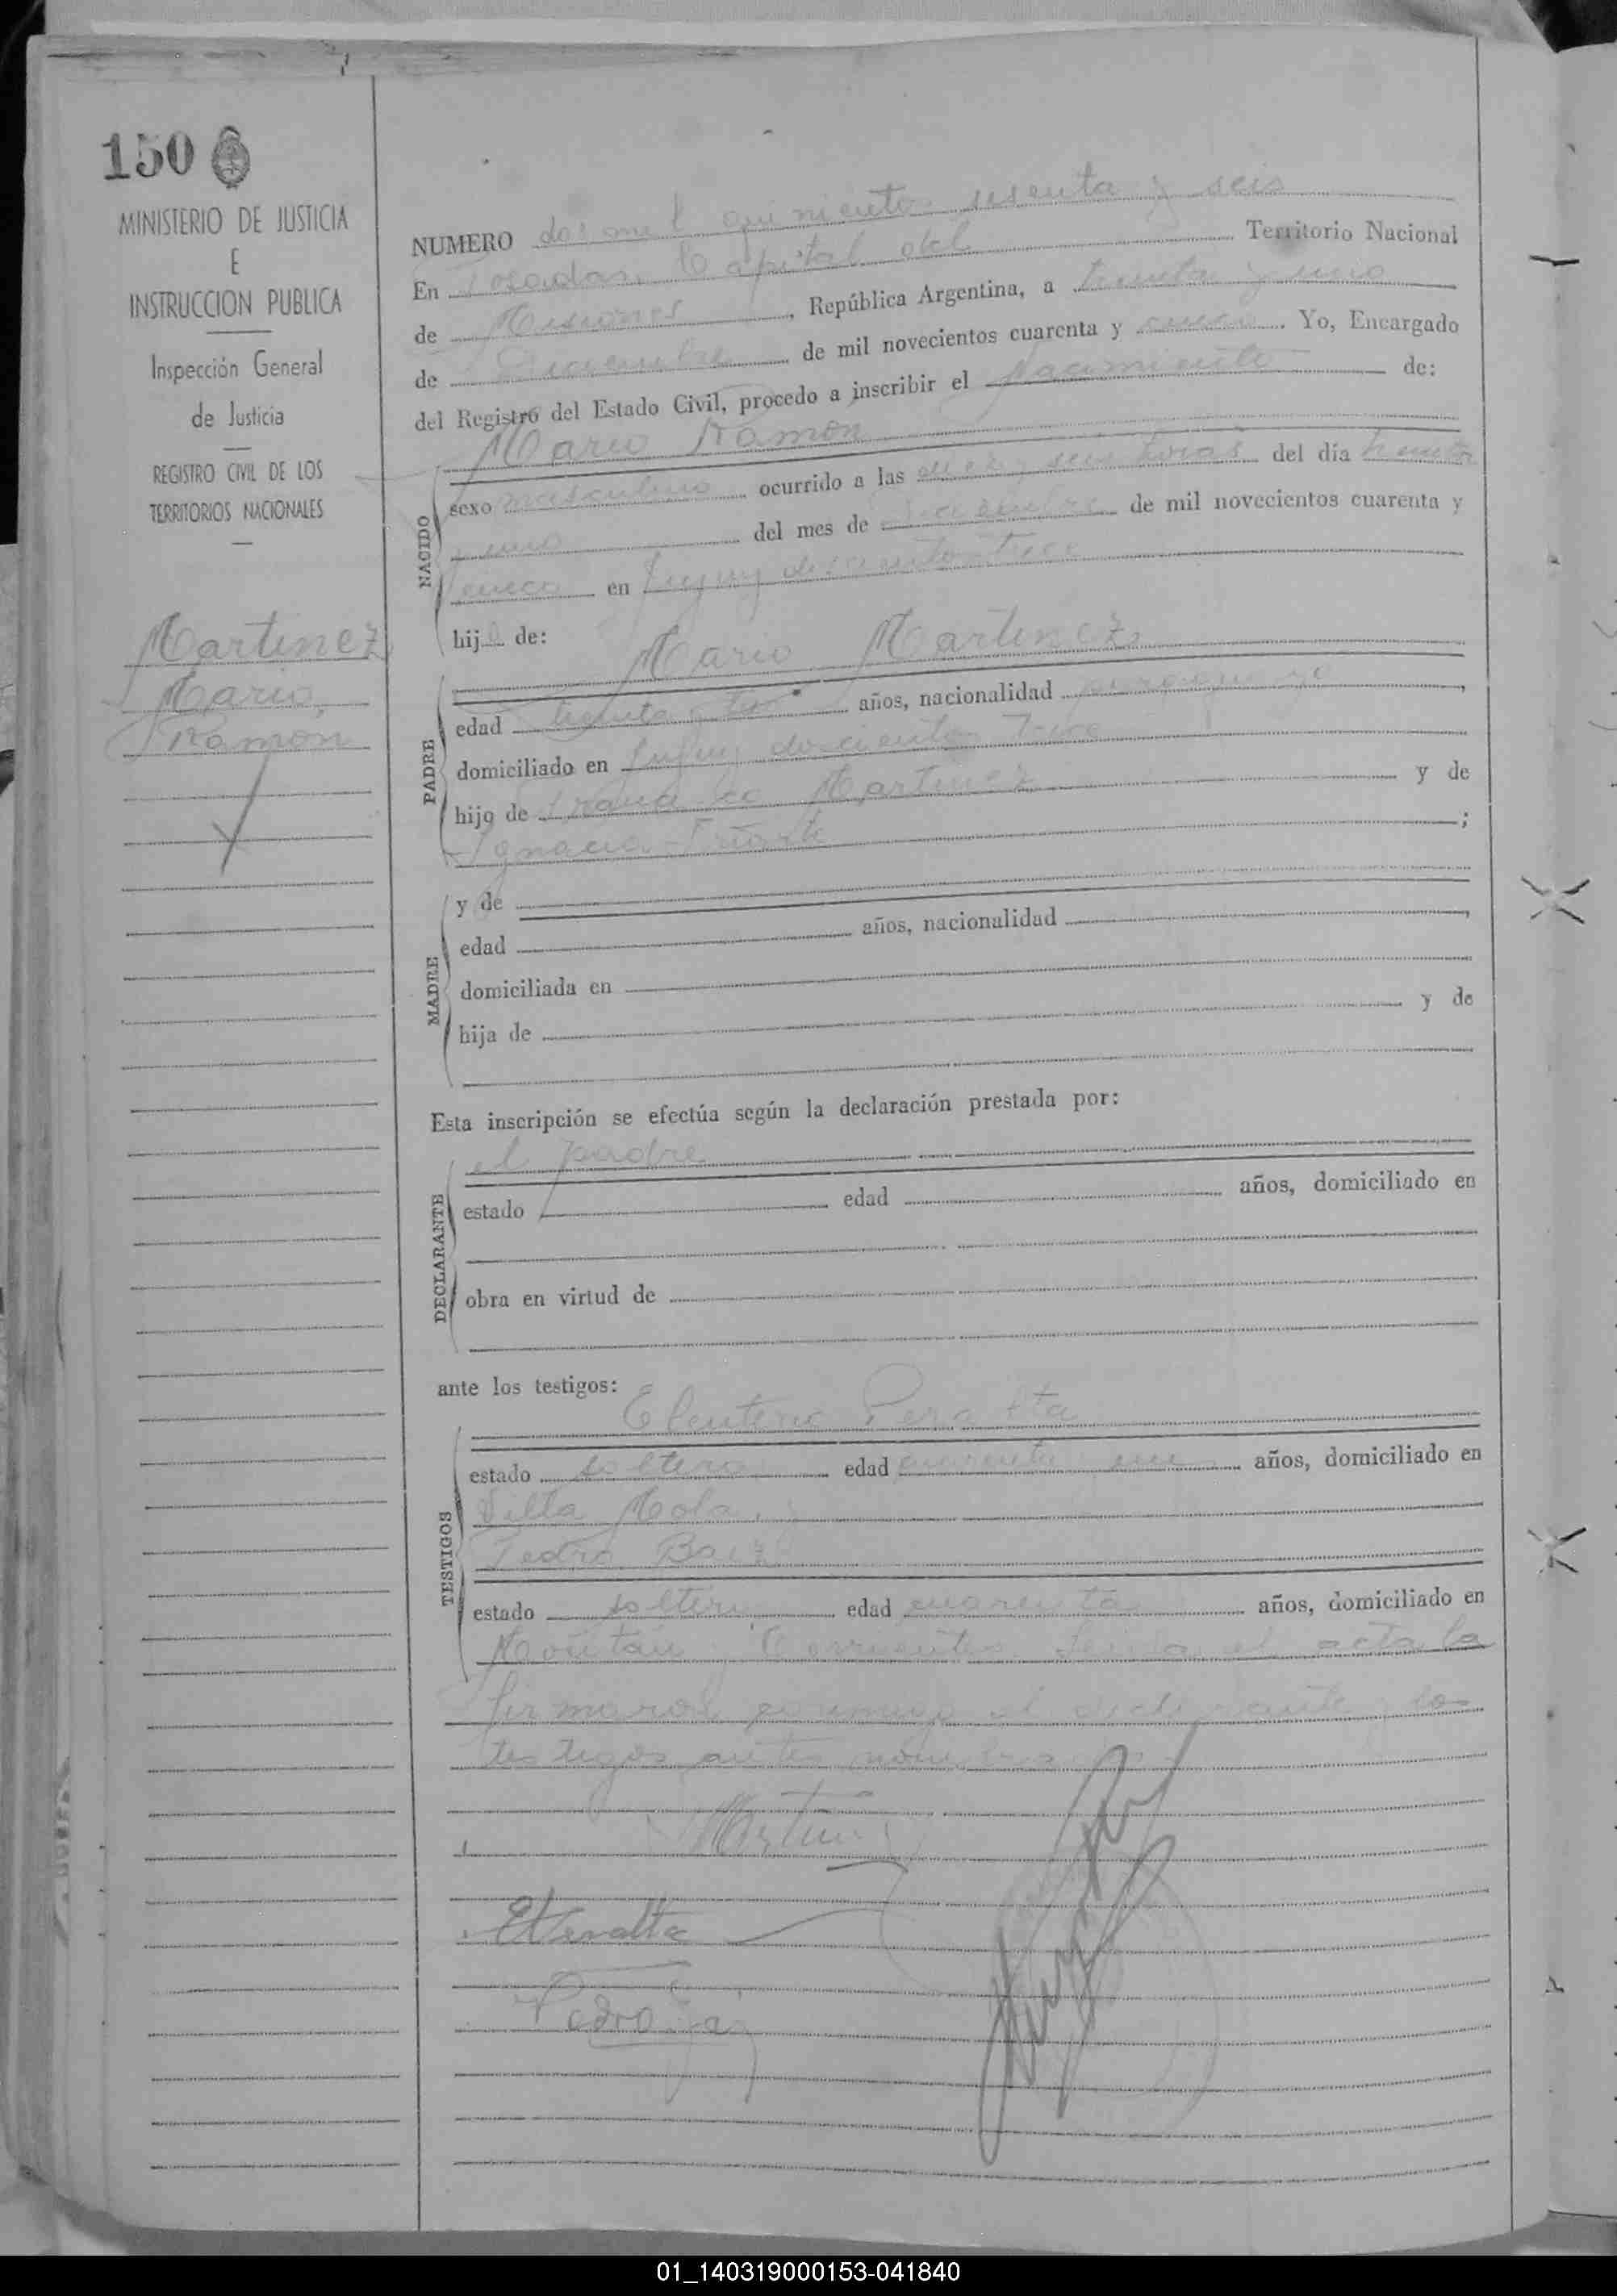 150
MINISTERIO DE JUSTICIA
E
INSTRUCCION PUBLICA
Inspección General
de Justicia
REGISTRO CIVIL DE LOS
TERRITORIOS NACIONALES
Martinez
Mario,
Ramon
NUMERO dos mil quinientos sesenta y seis
En Posadas, Capital del Territorio Nacional
de Misiones, República Argentina, a treinta y uno
de Diciembre de mil novecientos cuarenta y cinco. Yo, Encargado
del Registro del Estado Civil, procedo a inscribir el Nacimiento de:
Mario Ramon
NACIDO
sexo masculino ocurrido a las diez y seis horas del día treinta
y uno del mes de diciembre de mil novecientos cuarenta y
cinco en Jujuy doscientos trece
hijo de: Mario Martinez
PADRE
edad treinta años, nacionalidad
domiciliado en Jujuy doscientos trece
hijo de Martinez y de
Ignacia ;
MADRE
y de
edad años, nacionalidad
domiciliada en
hija de y de
Esta inscripción se efectúa según la declaración prestada por:
el padre
DECLARANTE
estado edad años, domiciliado en
obra en virtud de
ante los testigos:
Eleuterio Peralta
TESTIGOS
estado soltero edad cuarenta años, domiciliado en
Villa Mola,
Pedro Baez
estado soltero edad cuarenta años, domiciliado en
Corrientes. Leida el acta la
firmaron conmigo el declarante y los
testigos antes nombrados
E Peralta
Pedro
01_140319000153-041840